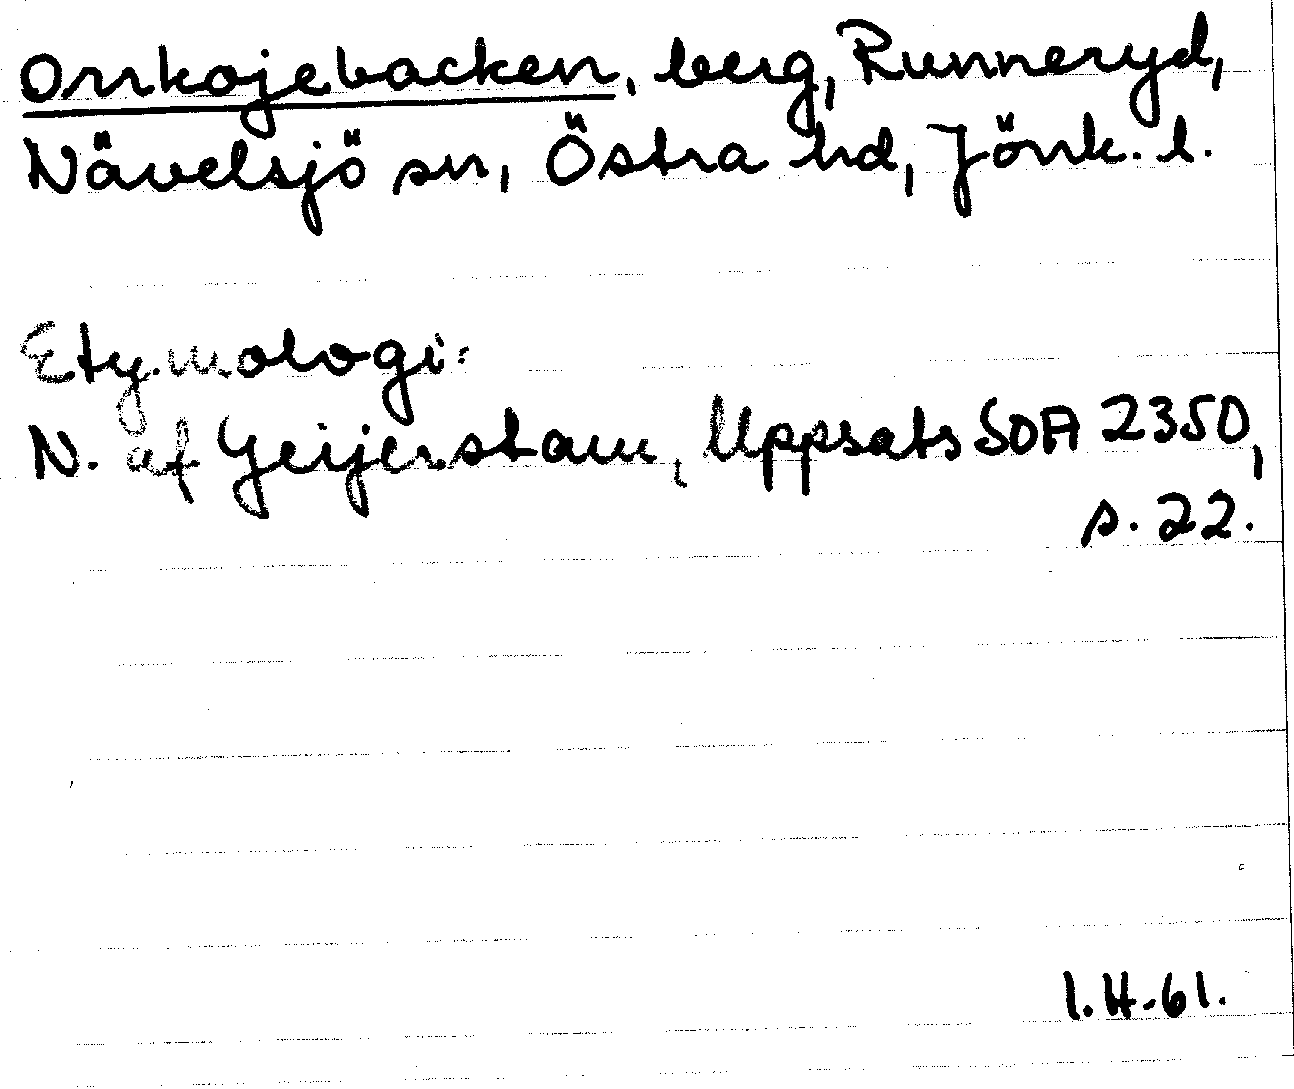 Orrkojebacken, berg, Runneryd,
Nävelsjö sn, Östra hd, Jönk. l.
Etymologi:
N. af Geijerstam, Uppsats SOA 2350,
s. 22.
I.H-61.